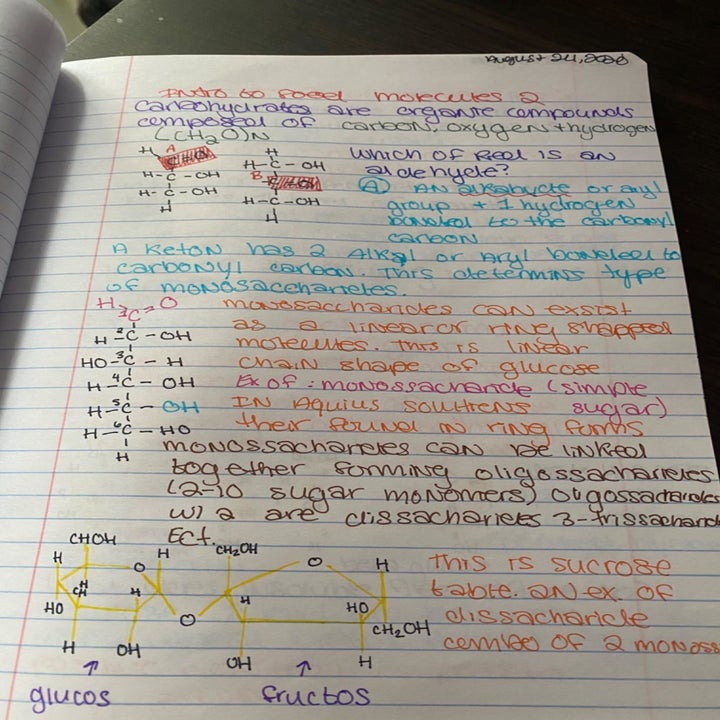 August 24, 2020
Intro to food molecules 2
Carbohydrates are organic compounds
composed of carbon, oxygen + hydrogen
(CH2O)N
Which of Red is an
aldehyde?
H A
H-C-OH
H-C-OH
H
H
H-C-OH
B
H-C-OH
H
(A) AN or aryl
group + 1 hydrogen
bonded to the carbonyl
carbon
A Keton has 2 Alkyl or Aryl bonded to
carbonyl carbon. This determins type
of monosaccharides.
H C=O
H-2C-OH
HO-3C-H
H-4C-OH
H-5C-OH
H-6C-HO
H
monosaccharides can exsist
as a linear or ring shapped
molecules. This is linear
chain shape of glucose
Ex of: monossacharide (simple
sugar)
IN Aquius soultrens
their found in ring forms
monossacharides can be linked
together forming oligossacharieles
(2-10 sugar monomers) Oligossacharieles
w/ 2 are dissachariets 3-trissachand
Ect.
CHOH
H
O
H
HO
H
H
OH
O
CH2OH
O
H
H
HO
CH2OH
OH
H
↑
glucos
↑
fructos
This is sucrose
table. an ex. of
dissacharicle
of 2 monoss